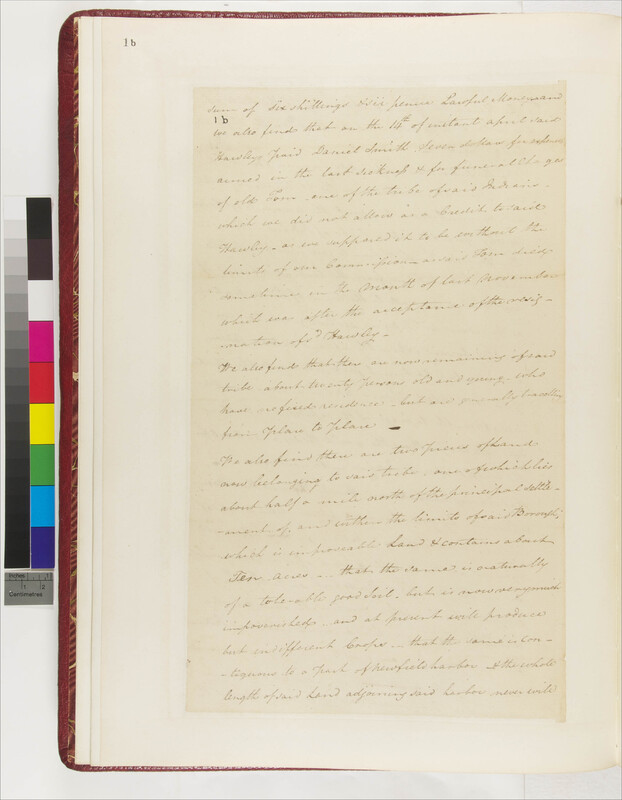 1b
sum of Six shillings & six pence Lawful Money and
1b
we also find that on the 14th of instant april said
Hawley paid Daniel Smith seven dollars for expences
in the last sickness & for funeral Charges
of old Tom one of the tribe of said Indians
which we did not allow as a Credit to said
Hawley as we supposed it to be without the
limits of our Commission as said Tom died
sometime in the Month of last November
which was after the acceptance of the resig-
nation of sd Hawley
We also find that there are now remaining of said
tribe about twenty persons old and young who
have no fixed residence but are generally travelling
from place to place
We also find there are two pieces of Land
now belonging to said tribe, one of which lies
about half a mile north of the principal settle-
-ment of, and within the limits of said Borough,
which is improveable Land & contains about
Ten acres - that the same is naturally
of a tolerable good soil, but is now very much
impoverished, and at present will produce
but indifferent Crops - that the same is con-
-tiguous to a part of Newfield harbor & the whole
length of said Land adjoining said harbor never will
Inches 1 2
Centimetres